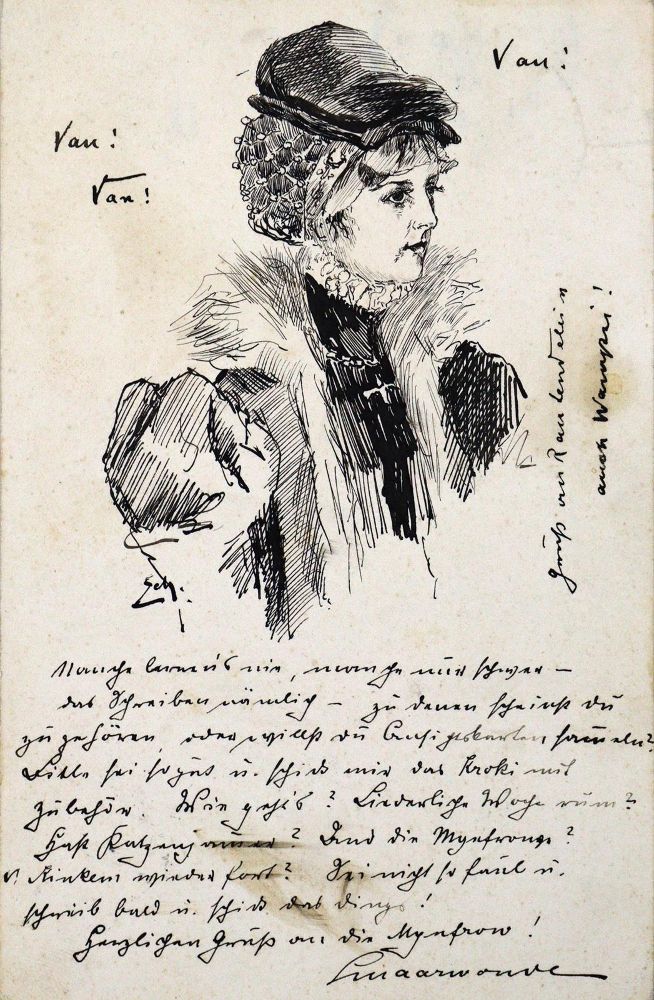 Van!
Van!
Van!
Gruß an Rautendelein
auch
Sch.
Manche lernen's nie, manche nur schwer –
das Schreiben nämlich – zu denen scheinst du
zu gehören, oder willst du Ansichtskarten sammeln?
Bitte sei so gut u. schick mir das Kroki mit
Zubehör. Wie geht's? Liederliche Woche rum?
Hast Katzenjammer? Und die Mynfrouw?
wieder fort? Sei nicht so faul u.
schreib bald u. schick das Dings!
Herzlichen Gruß an die Mynfrow!